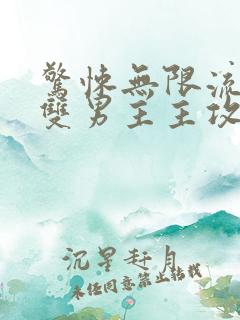 驚悚無限流
雙男主主攻
沉星赶月
未经同意禁止转载